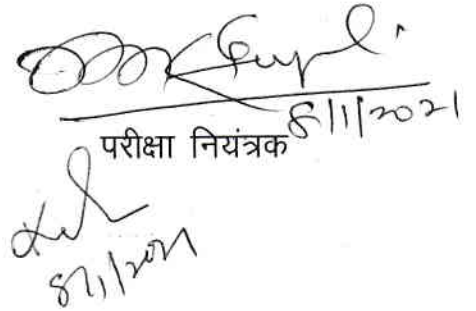 Gupta
8/1/2021
परीक्षा नियंत्रक
8/1/2021